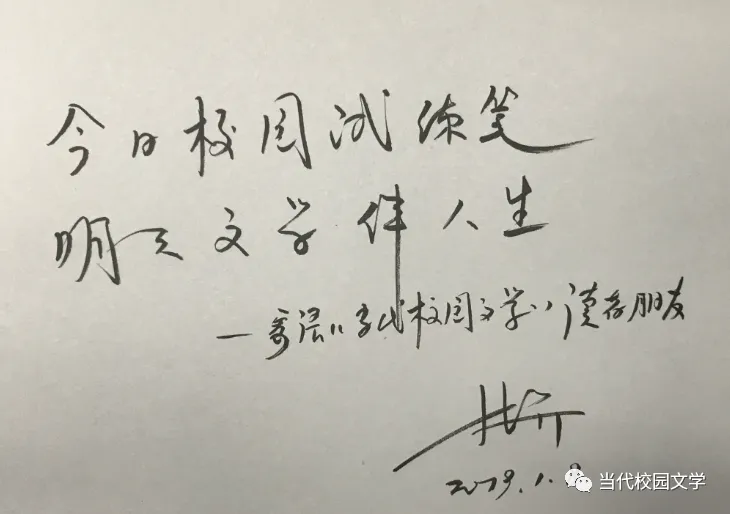 今日校园试练笔
明天文学伴人生
—寄语《当代校园文学》读者朋友
2019.1.
当代校园文学